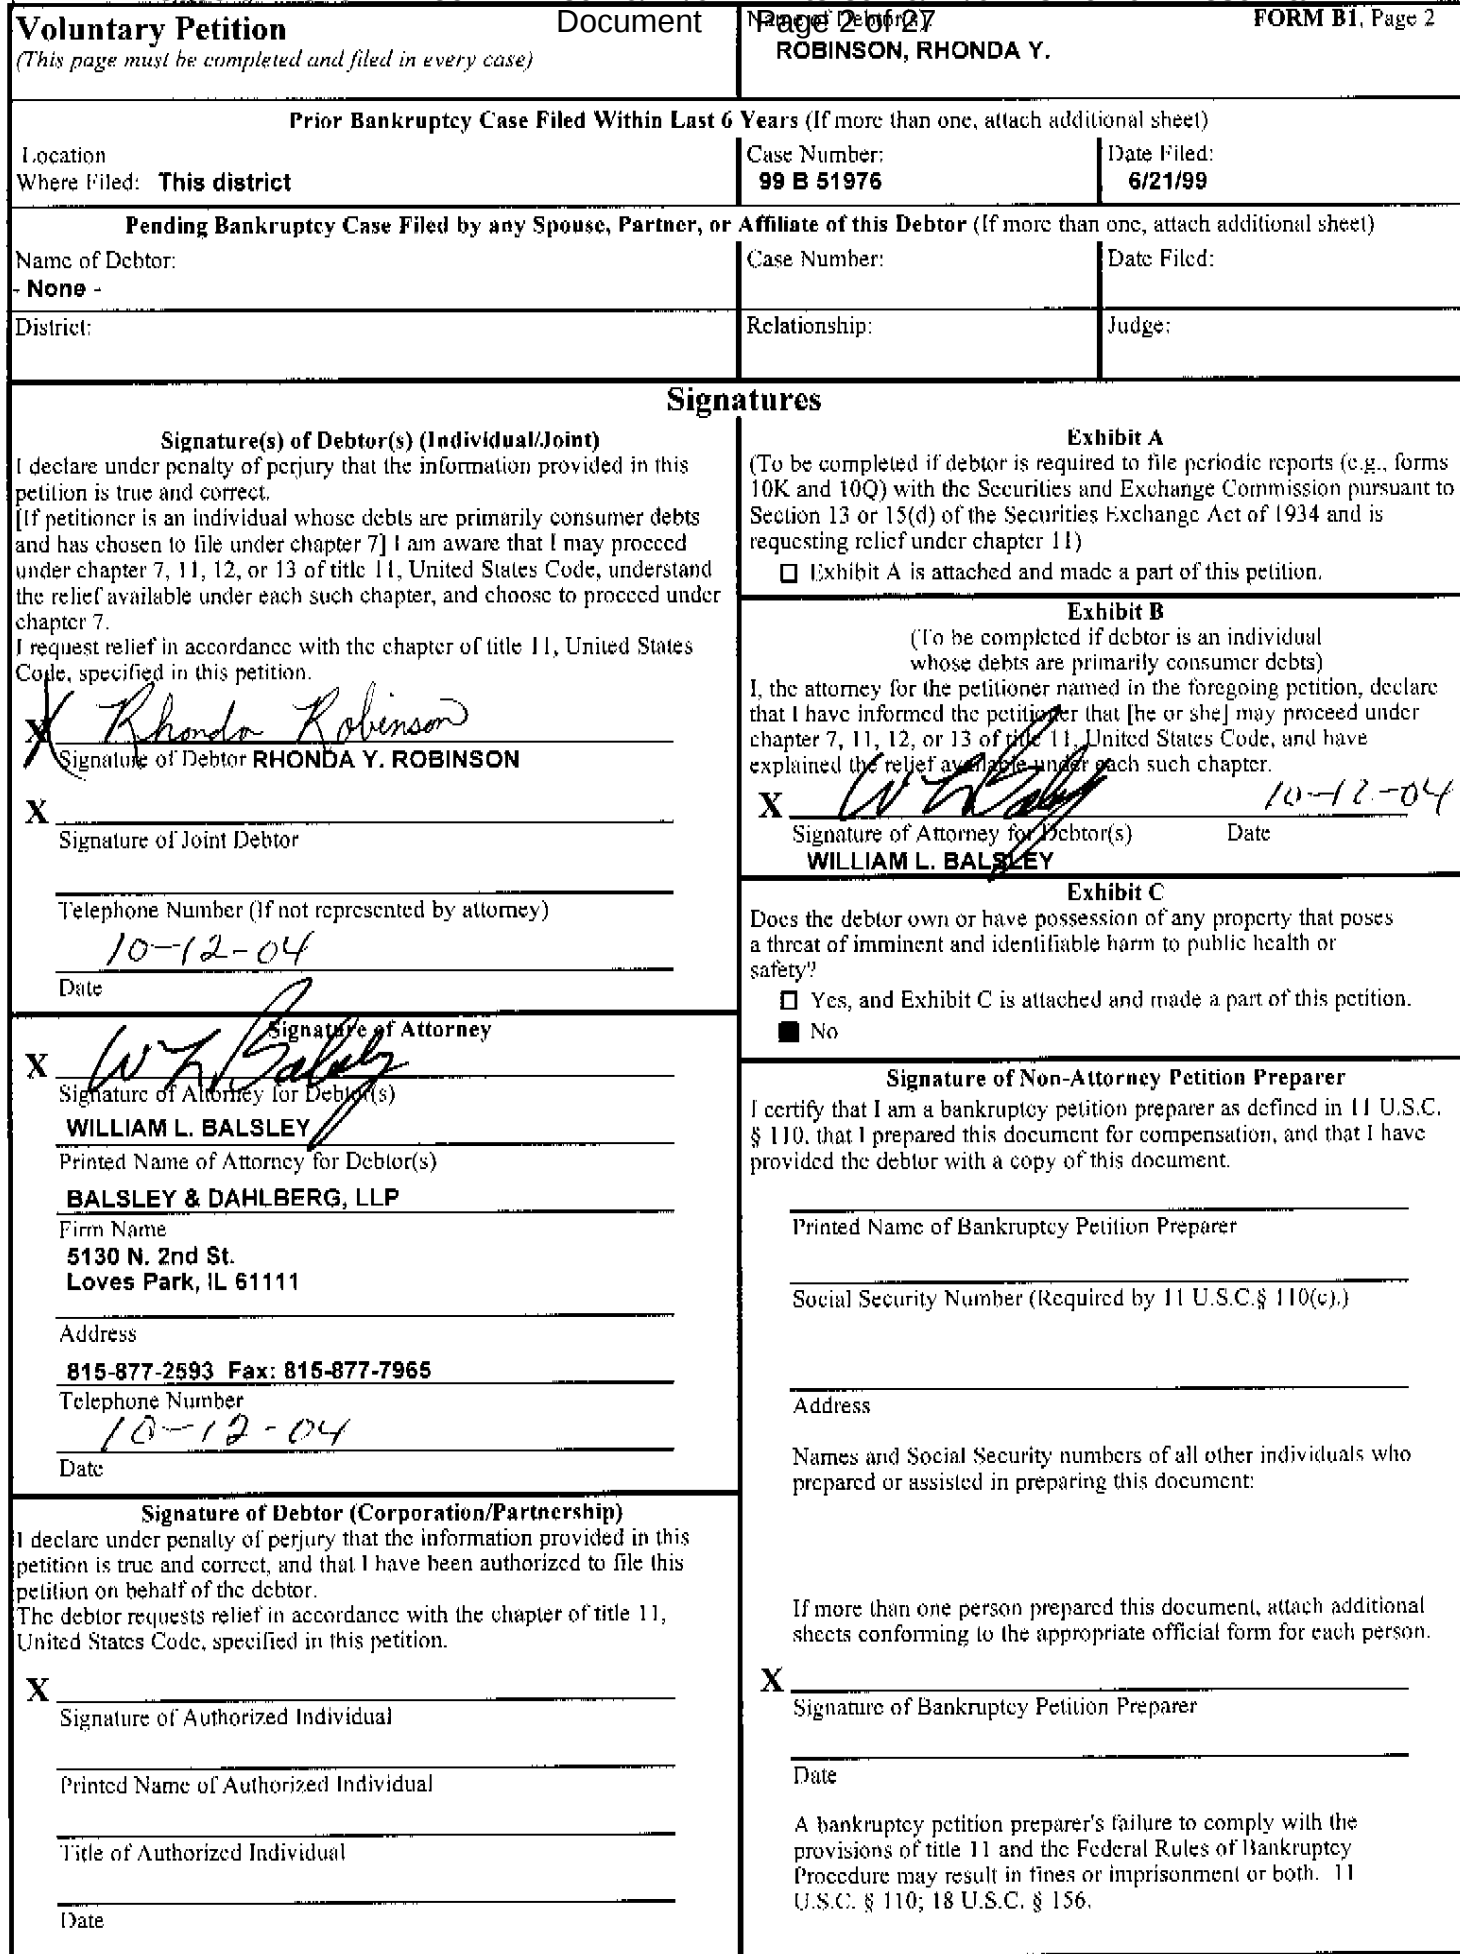 Document Page 2 of 27
Voluntary Petition
(This page must be completed and filed in every case)
Name of Debtor(s):
ROBINSON, RHONDA Y.
FORM B1, Page 2
Prior Bankruptcy Case Filed Within Last 6 Years (If more than one, attach additional sheet)
Location
Where Filed: This district
Case Number:
99 B 51976
Date Filed:
6/21/99
Pending Bankruptcy Case Filed by any Spouse, Partner, or Affiliate of this Debtor (If more than one, attach additional sheet)
Name of Debtor:
- None -
Case Number:
Date Filed:
District:
Relationship:
Judge:
Signatures
Signature(s) of Debtor(s) (Individual/Joint)
I declare under penalty of perjury that the information provided in this
petition is true and correct.
[If petitioner is an individual whose debts are primarily consumer debts
and has chosen to file under chapter 7] I am aware that I may proceed
under chapter 7, 11, 12, or 13 of title 11, United States Code, understand
the relief available under each such chapter, and choose to proceed under
chapter 7.
I request relief in accordance with the chapter of title 11, United States
Code, specified in this petition.
X Rhonda Robinson
Signature of Debtor RHONDA Y. ROBINSON
X
Signature of Joint Debtor
Telephone Number (If not represented by attorney)
10-12-04
Date
Signature of Attorney
X W L Balsley
Signature of Attorney for Debtor(s)
WILLIAM L. BALSLEY
Printed Name of Attorney for Debtor(s)
BALSLEY & DAHLBERG, LLP
Firm Name
5130 N. 2nd St.
Loves Park, IL 61111
Address
815-877-2593 Fax: 815-877-7965
Telephone Number
10-12-04
Date
Signature of Debtor (Corporation/Partnership)
I declare under penalty of perjury that the information provided in this
petition is true and correct, and that I have been authorized to file this
petition on behalf of the debtor.
The debtor requests relief in accordance with the chapter of title 11,
United States Code, specified in this petition.
X
Signature of Authorized Individual
Printed Name of Authorized Individual
Title of Authorized Individual
Date
Exhibit A
(To be completed if debtor is required to file periodic reports (e.g., forms
10K and 10Q) with the Securities and Exchange Commission pursuant to
Section 13 or 15(d) of the Securities Exchange Act of 1934 and is
requesting relief under chapter 11)
☐ Exhibit A is attached and made a part of this petition.
Exhibit B
(To be completed if debtor is an individual
whose debts are primarily consumer debts)
I, the attorney for the petitioner named in the foregoing petition, declare
that I have informed the petitioner that [he or she] may proceed under
chapter 7, 11, 12, or 13 of title 11, United States Code, and have
explained the relief available under each such chapter.
X W L Balsley 10-12-04
Signature of Attorney for Debtor(s) Date
WILLIAM L. BALSLEY
Exhibit C
Does the debtor own or have possession of any property that poses
a threat of imminent and identifiable harm to public health or
safety?
☐ Yes, and Exhibit C is attached and made a part of this petition.
■ No
Signature of Non-Attorney Petition Preparer
I certify that I am a bankruptcy petition preparer as defined in 11 U.S.C.
§ 110, that I prepared this document for compensation, and that I have
provided the debtor with a copy of this document.
Printed Name of Bankruptcy Petition Preparer
Social Security Number (Required by 11 U.S.C.§ 110(c).)
Address
Names and Social Security numbers of all other individuals who
prepared or assisted in preparing this document:
If more than one person prepared this document, attach additional
sheets conforming to the appropriate official form for each person.
X
Signature of Bankruptcy Petition Preparer
Date
A bankruptcy petition preparer's failure to comply with the
provisions of title 11 and the Federal Rules of Bankruptcy
Procedure may result in fines or imprisonment or both. 11
U.S.C. § 110; 18 U.S.C. § 156.